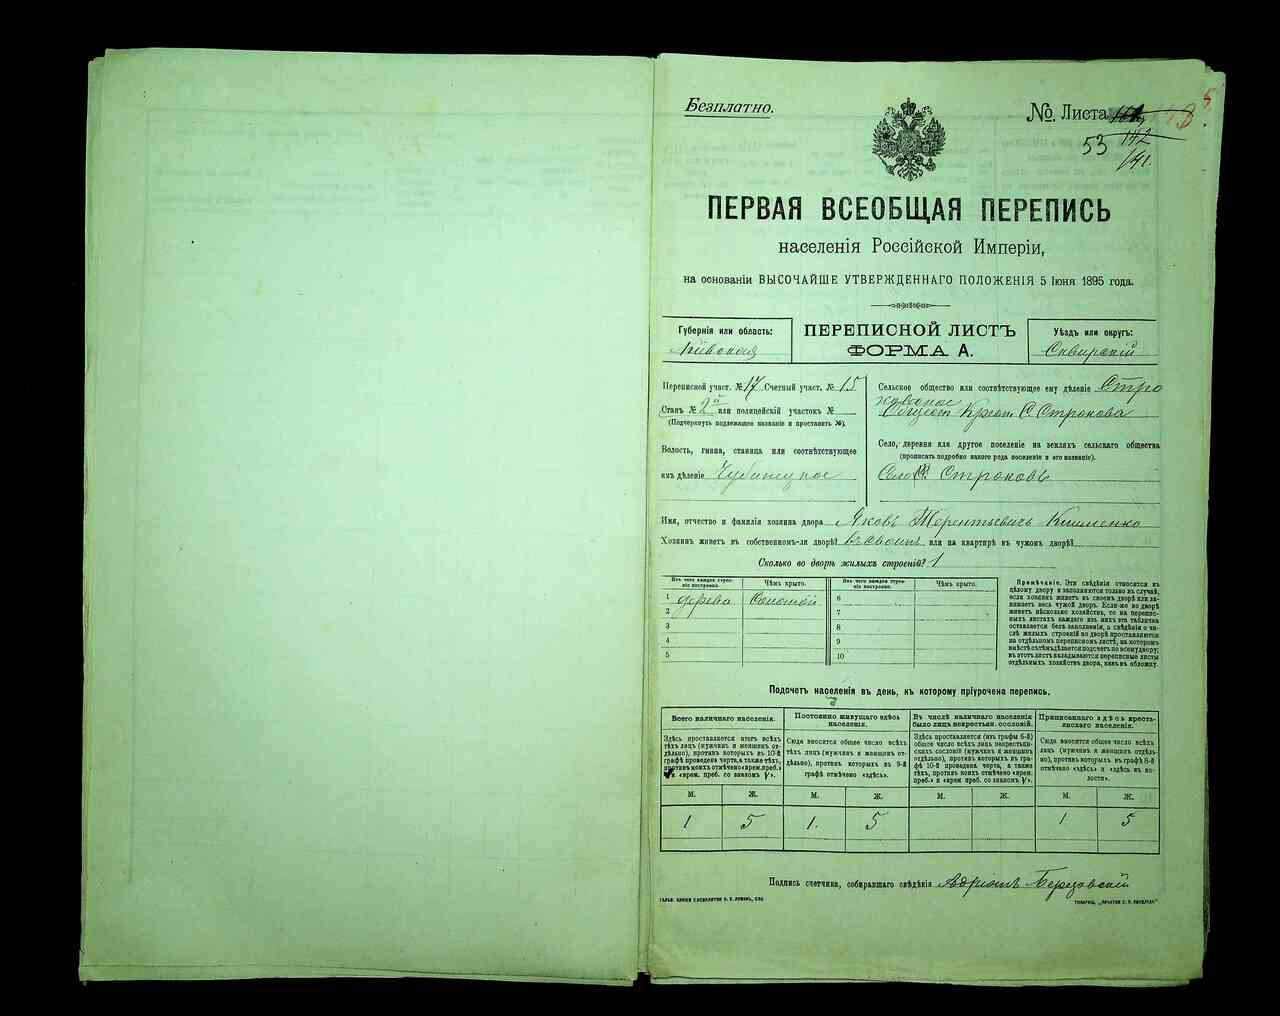 Безплатно.
№. Листа
53 142
141.
ПЕРВАЯ ВСЕОБЩАЯ ПЕРЕПИСЬ
населенія Россійской Имперіи,
на основаніи ВЫСОЧАЙШЕ УТВЕРЖДЕННАГО ПОЛОЖЕНІЯ 5 Іюня 1895 года.
Губернія или область:
Кіевская
ПЕРЕПИСНОЙ ЛИСТЪ
ФОРМА А.
Уѣздъ или округъ:
Сквирскій
Переписной участ. № 17 Счетный участ. № 15
Станъ № 2й или полицейскій участокъ №
(Подчеркнуть подлежащее названіе и проставить №).
Волость, гмина, станица или соотвѣтствующее
имъ дѣленіе
Сельское общество или соотвѣтствующее ему дѣленіе
Крест. С. Строкова
Село, деревня или другое поселеніе на земляхъ сельскаго общества
(прописать подробно какого рода поселеніе и его названіе).
Село Строковъ
Имя, отчество и фамилія хозяина двора Яковъ Терентьевичъ Клименко
Хозяинъ живетъ въ собственномъ-ли дворѣ? въ своемъ или на квартирѣ въ чужомъ дворѣ?
Сколько во дворѣ жилыхъ строеній? 1
Изъ чего каждое строеніе построено. Чѣмъ крыто. Изъ чего каждое строеніе построено. Чѣмъ крыто.
1 дерева Соломой 6
2 7
3 8
4 9
5 10
Примѣчаніе. Эти свѣдѣнія относятся къ
цѣлому двору и заполняются только въ случаѣ,
если хозяинъ живетъ въ своемъ дворѣ или занимаетъ
весь чужой дворъ. Если-же во дворѣ
живетъ нѣсколько хозяйствъ, то на переписныхъ
листахъ каждаго изъ нихъ эта табличка
оставляется безъ заполненія, а свѣдѣнія о числѣ
жилыхъ строеній во дворѣ проставляются
на отдѣльномъ переписномъ листѣ, на которомъ
вмѣстѣ съ тѣмъ дѣлается подсчетъ по всему двору;
въ этотъ листъ вкладываются переписные листы
отдѣльныхъ хозяйствъ двора, какъ въ обложку.
Подсчетъ населенія въ день, къ которому пріурочена перепись.
Всего наличнаго населенія.
Здѣсь проставляется итогъ всѣхъ
тѣхъ лицъ (мужчинъ и женщинъ отдѣльно),
противъ которыхъ въ 10-й
графѣ проведена черта, а также тѣхъ,
противъ коихъ отмѣчено «врем. преб.»
и «врем. преб. со знакомъ V».
Постоянно живущаго здѣсь населенія.
Сюда вносится общее число всѣхъ
тѣхъ лицъ (мужчинъ и женщинъ отдѣльно),
противъ которыхъ въ 9-й
графѣ отмѣчено «здѣсь».
Въ числѣ наличнаго населенія было лицъ некрестьян. сословій.
Здѣсь проставляется (изъ графы 6-й)
общее число всѣхъ лицъ некрестьянскихъ
сословій (мужчинъ и женщинъ
отдѣльно), противъ которыхъ въ графѣ
10-й проведена черта, а также
тѣхъ, противъ коихъ отмѣчено «врем.
преб.» и «врем. преб. со знакомъ V».
Приписаннаго здѣсь крестьянскаго населенія.
Сюда вносится общее число всѣхъ
лицъ (мужчинъ и женщинъ отдѣльно),
противъ которыхъ въ графѣ 8-й
отмѣчено «здѣсь» и «здѣсь въ волости».
М. Ж. М. Ж. М. Ж. М. Ж.
1 5 1. 5 1 5
Подпись счетчика, собиравшаго свѣдѣнія Адріанъ Березовскій